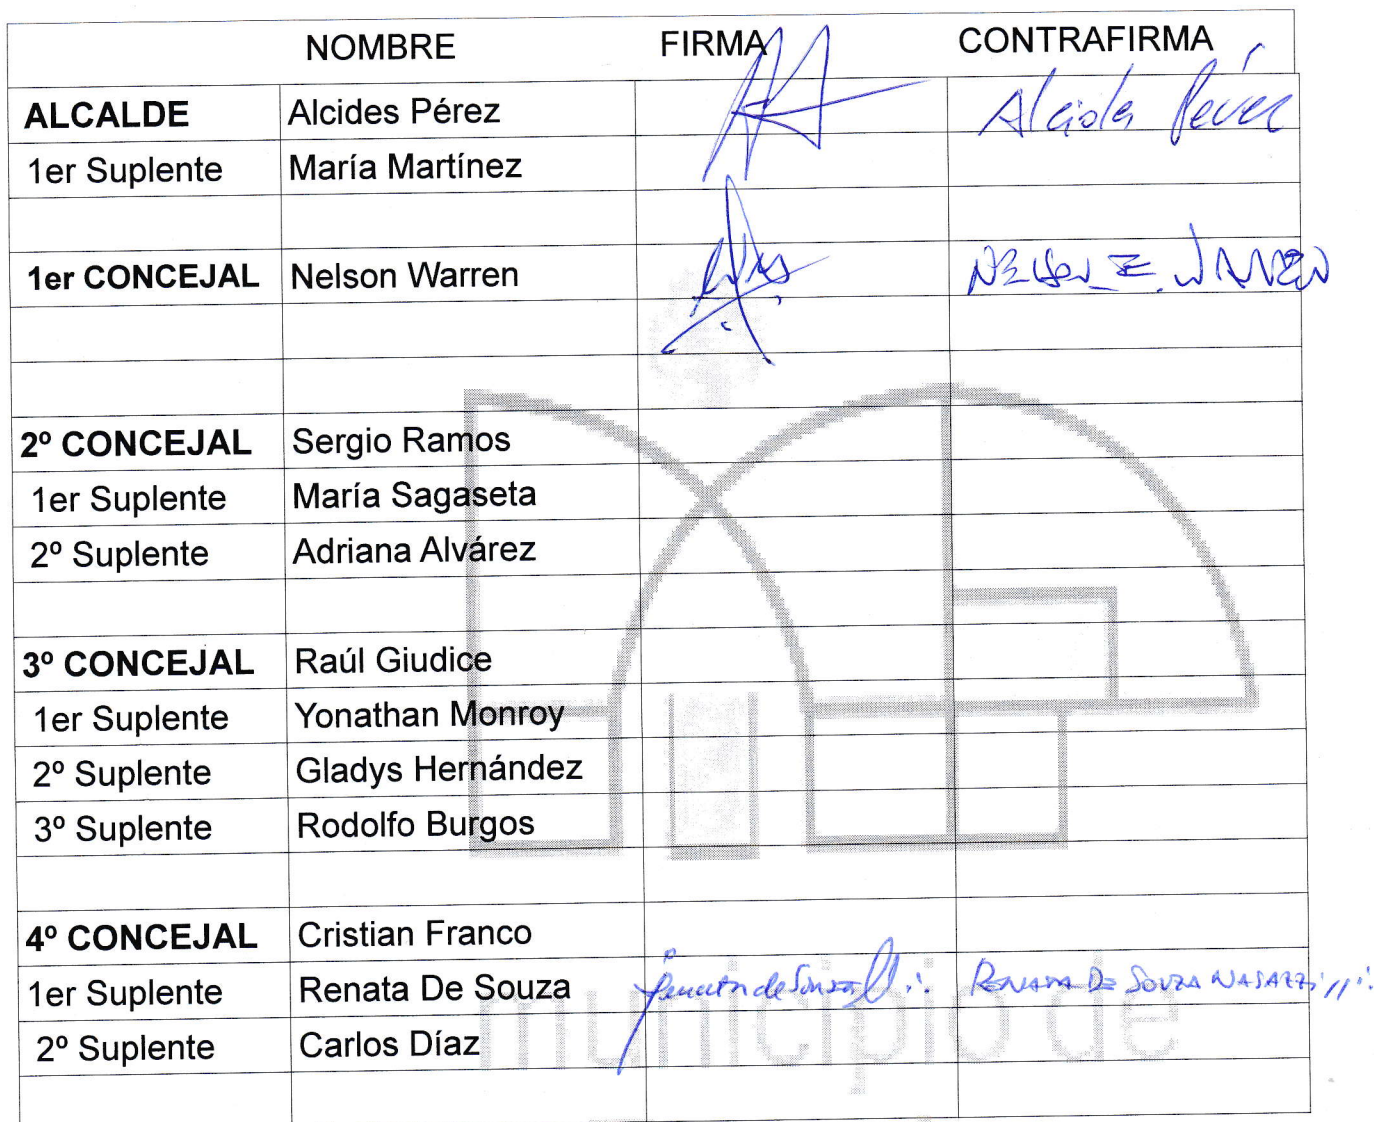 NOMBRE FIRMA CONTRAFIRMA
ALCALDE Alcides Pérez Alcides Pérez
1er Suplente María Martínez
1er CONCEJAL Nelson Warren NELSON E. WARREN
2º CONCEJAL Sergio Ramos
1er Suplente María Sagaseta
2º Suplente Adriana Alvárez
3º CONCEJAL Raúl Giudice
1er Suplente Yonathan Monroy
2º Suplente Gladys Hernández
3º Suplente Rodolfo Burgos
4º CONCEJAL Cristian Franco
1er Suplente Renata De Souza Renata de Souza RENATA DE SOUZA NASAZZI
2º Suplente Carlos Díaz
municipio de